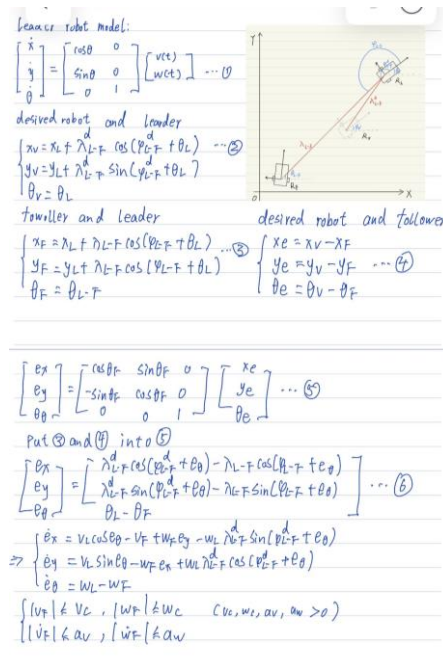 Leaacr robot model:
[ẋ ẏ θ̇] = [cosθ 0; sinθ 0; 0 1] [v(t) w(t)] ...①
desired robot and leader
{ xv = xL + λ^d_L-F cos(φ^d_L-F + θL) ...②
yv = yL + λ^d_L-F sin(φ^d_L-F + θL)
θv = θL
Y
X
O
towller and leader
{ xF = λL + λL-F cos(φL-F + θL) ...③
yF = yL + λL-F cos(φL-F + θL)
θF = θL-F
desired robot and follower
{ xe = xv - xF
ye = yv - yF ...④
θe = θv - θF
[ex ey eθ] = [cosθF sinθF 0; -sinθF cosθF 0; 0 0 1] [xe ye θe] ...⑤
put ③ and ④ into ⑤
[ex ey eθ] = [λ^d_L-F cos(φ^d_L-F + eθ) - λL-F cos(φL-F + eθ)
λ^d_L-F sin(φ^d_L-F + eθ) - λL-F sin(φL-F + eθ)
θL - θF] ...⑥
⇒ { ėx = vL cos eθ - vF + wF ey - wL λ^d_L-F sin(φ^d_L-F + eθ)
ėy = vL sin eθ - wF ex + wL λ^d_L-F cos(φ^d_L-F + eθ)
ėθ = wL - wF
{ |vF| ≤ vc, |wF| ≤ wc (vc, wc, av, aw > 0)
|v̇F| ≤ av, |ẇF| ≤ aw